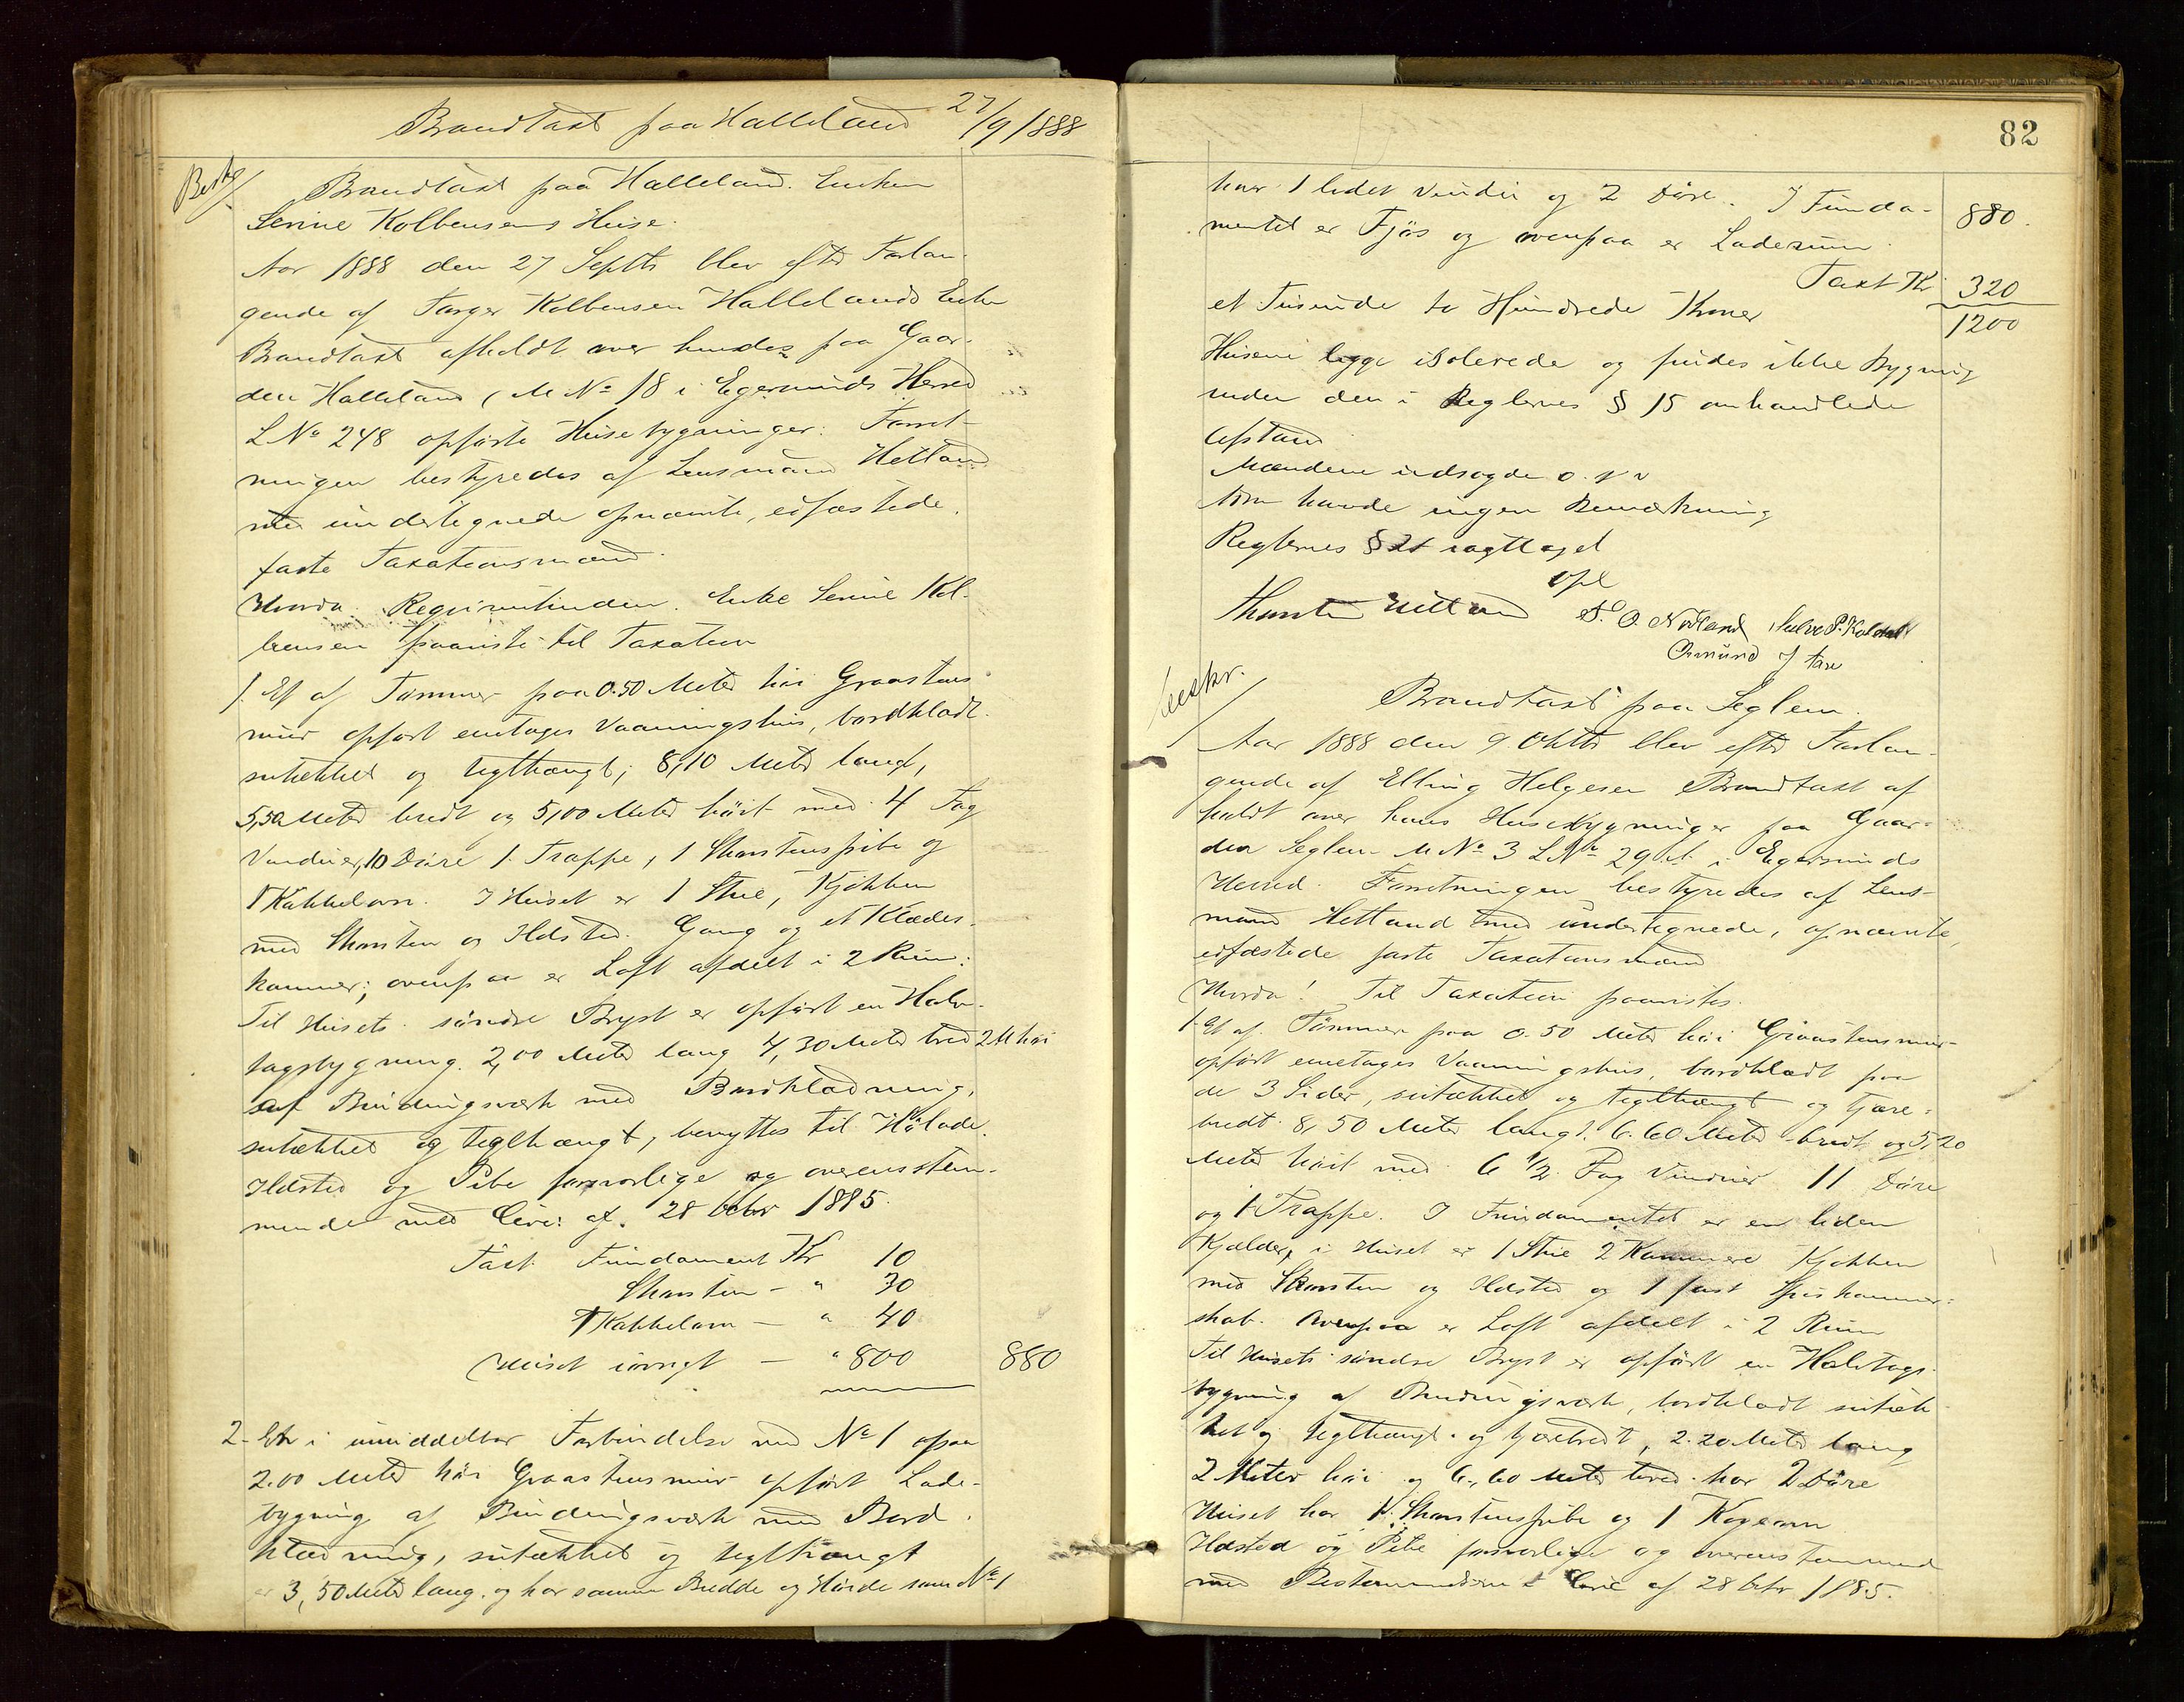 Brandtaxt paa Halleland 27/9 1888
Beskr
Brandtaxt paa Halleland. Enken
Serine Kolbensens Huse.
Aar 1888 den 27 Septbr blev efter Forlan-
gende af Torger Kolbensen Hallelands Enke
Brandtaxt afholdt over hendes paa Gaar-
den Halleland (M No 18 i Egersunds Herred
L No 248 opførte Husebygninger. Forret-
ningen bestyredes af Lensmand Hetland
med undertegnede opnævnte, edfæstede
faste Taxationsmænd.
Hvorda: Requirentinden. Enke Serine Kol-
bensen paaviste til Taxation
1. Et af Tømmer paa 0.50 Meter høi Graastens
muur opført eenetages Vaaningshus, bordklædt
sutækket og teglhængt, 8,10 Meter langt,
5,50 Meter bredt og 5,00 Meter høit med 4 Fag
Vinduer, 10 Døre 1 Trappe, 1 Skorstenspibe og
1 Kakkelovn. I Huset er 1 Stue, Kjøkken
med Skorsten og Ildsted. Gang og et Klædes-
kammer; ovenpaa er Loft afdelt i 2 Rum:
Til Husets søndre Bryst er opført en Halv-
tagsbygning 2,00 Meter lang 4,30 Meter bred 2 M høi
af Bindingsværk med Bordklædning,
sutækket og teglhængt, benyttes til Hølade.
Ildsted og Pibe forsvarlige og overensstem-
mende med Circ: af 28 Octbr 1885.
Taxt Fundament Kr 10
Skorsten - " 30
1 Kakkelovn - " 40
Huset iøvrigt - " 800 880
2. En i umiddelbar Forbindelse med No 1 opaa
2.00 Meter høi Graastensmuur opført Lade-
bygning af Bindingsværk med Bord-
klædning, sutækket og teglhængt
er 3,50 Meter lang og har samme Bredde og Høide som No 1
82
har 1 lidet Vindu og 2 Døre. I Funda- 880.
mentet er Fjøs og ovenpaa er Laderum.
Taxt Kr 320
et Tusinde to Hundrede Kroner 1200
Husene ligge isolerede og findes ikke Bygning
inden den i Reglernes § 15 omhandlede
Afstand
Mændene udsagde o.s.v
som havde ingen Bemærkning
Reglernes § 21 iagttaget
Opl
Thorsten Hetland S. O. Nodland Salve P. Koldal
Osmund
beskr.
Brandtaxt paa Seglem.
Aar 1888 den 9. Oktbr blev efter Forlan-
gende af Elling Helgesen Brandtaxt af
holdt over hans Husebygninger paa Gaar-
den Seglem M No 3 L No 29 b i Egersunds
Herred. Forretningen bestyredes af Lens-
mand Hetland med undertegnede, opnævnte,
edfæstede faste Taxationsmænd
Hvorda! Til Taxation paavistes.
1. Et af Tømmer paa 0.50 Meter høi Graastensmur
opført eenetages Vaaningshus, bordklædt paa
de 3 Sider, sutækket og teglhængt og tjære-
bredt 8,50 Meter langt. 6.60 Meter bredt og 5,20
Meter høit med 6 1/2 Fag Vinduer 11 Døre
og 1 Trappe. I Fundamentet er en liden
Kjælder, i Huset er 1 Stue 2 Kammere Kjøkken
med Skorsten og Ildsted og 1 fast Spiskammer-
skab. Ovenpaa er Loft afdelt i 2 Rum
Til Husets søndre Bryst er opført en Halvtags
bygning af Bindingsværk, bordklædt sutæk
ket og teglhængt og tjærebredt, 2.20 Meter lang
2 Meter høi og 6,60 Meter bred har 2 Døre
Huset har 1 Skorstenspibe og 1 Kogeovn
Ildsted og Pibe forsvarlige og overensstemmend
med Bestemmelserne i Circ af 28 Octbr 1885.